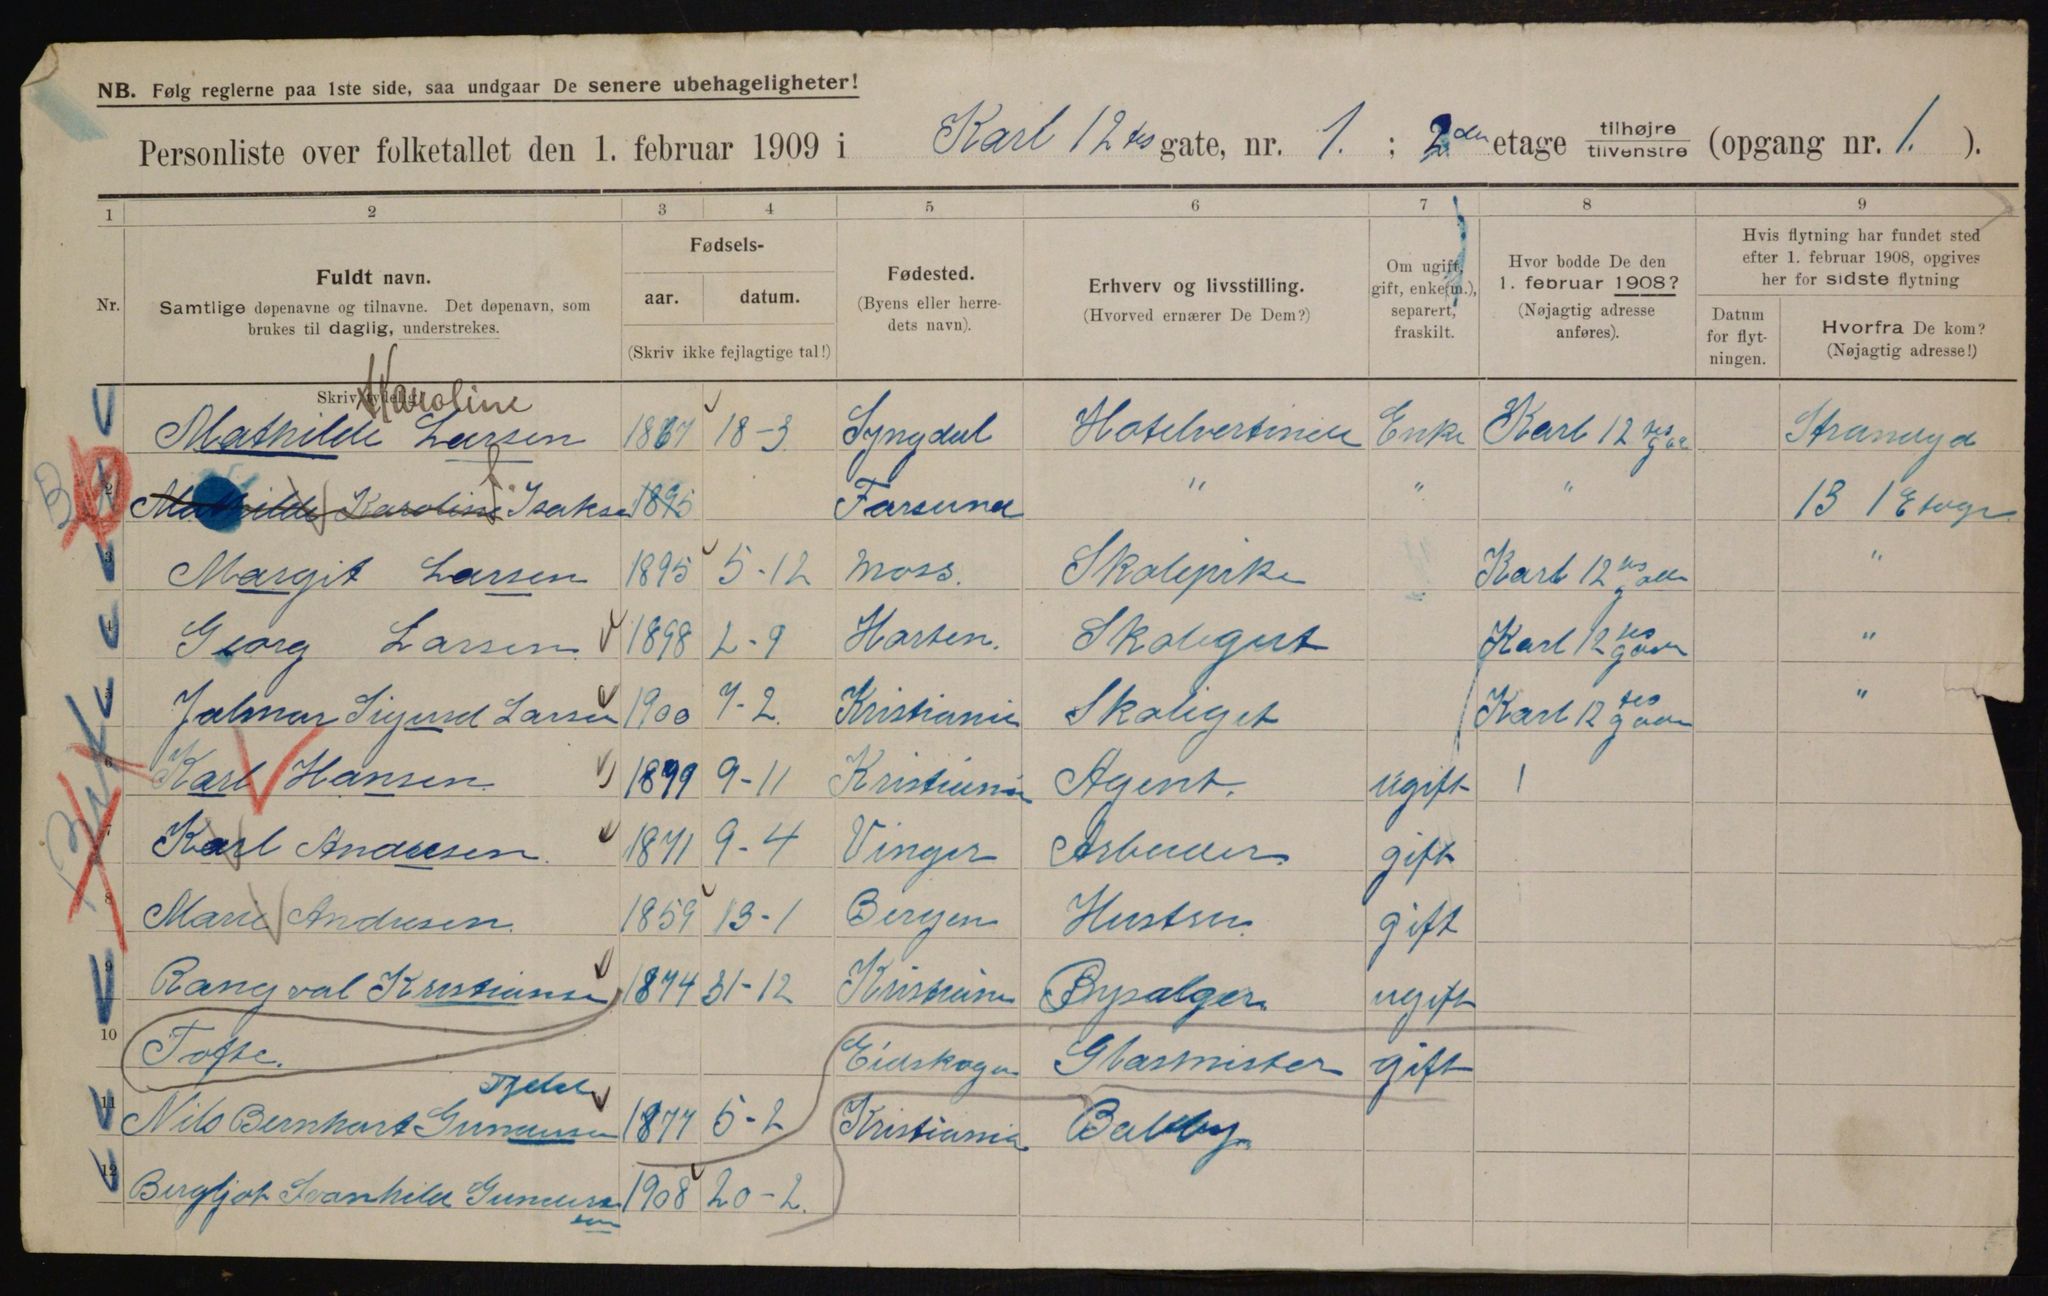 NB. Følg reglerne paa 1ste side, saa undgaar De senere ubehageligheter!
Personliste over folketallet den 1. februar 1909 i Karl 12tes gate, nr. 1. ; 2den etage tilhøjre tilvenstre (opgang nr. 1. ).
1 2 3 4 5 6 7 8 9
Nr.
Fuldt navn.
Samtlige døpenavne og tilnavne. Det døpenavn, som
brukes til daglig, understrekes.
Fødsels-
aar. datum.
(Skriv ikke fejlagtige tal!)
Fødested.
(Byens eller herre-
dets navn).
Erhverv og livsstilling.
(Hvorved ernærer De Dem?)
Om ugift,
gift, enke(m.),
separert,
fraskilt.
Hvor bodde De den
1. februar 1908?
(Nøjagtig adresse
anføres).
Hvis flytning har fundet sted
efter 1. februar 1908, opgives
her for sidste flytning
Datum
for flyt-
ningen.
Hvorfra De kom?
(Nøjagtig adresse!)
Skriv tydelig
Karoline
Mathilde Larsen 1867 18-3 Lyngdal Enke Karl 12tes
2 Mathilde Karoline Isakse 1895 Farsund " " " 13 1 Etage
3 Margit Larsen 1895 5-12 Moss. Skolepike Karl 12tes "
4 Georg Larsen 1898 2-9 Horten. Skolegut Karl 12tes "
5 Jalmar Sigurd Larsen 1900 7-2. Kristiania Karl 12tes "
6 Karl Hansen. 1879 9-11 Kristiania Agent. ugift
7 Karl Andersen. 1871 9-4 Vinger Arbeider gift
8 Marie Andersen. 1859 13-1 Bergen Hustru gift
9 Rangval Kristianse 1874 31-12 Kristiania ugift
10 Tofte. Eidskogen Glasmester gift
11 Nils Bernhart Gundersen 1877 5-2 Kristiania
12 Bergljot Svanhild Gunders 1908 20-2.
sen